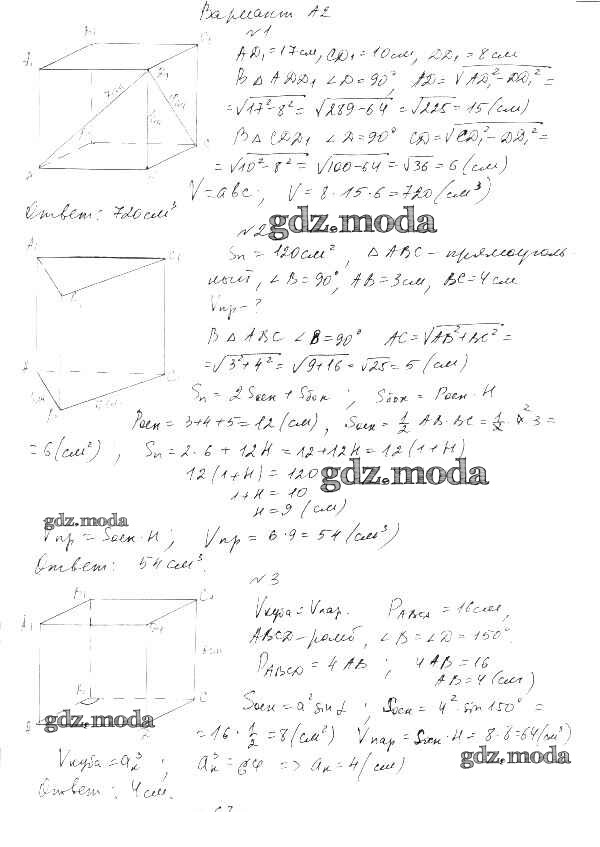 Вариант А2
№1
AD₁=17см, CD₁=10см, DD₁=8см
В △ADD₁ ∠D=90°, AD=√AD₁²-DD₁²=
=√17²-8²=√289-64=√225=15(см)
В △CDD₁ ∠D=90° CD=√CD₁²-DD₁²=
=√10²-8²=√100-64=√36=6(см)
V=abc; V=8·15·6=720(см³)
Ответ: 720см³
gdz.moda
№2
Sп=120см², △ABC-прямоуголь-
ный, ∠B=90°, AB=3см, BC=4см
Vпр-?
В △ABC ∠B=90° AC=√AB²+BC²=
=√3²+4²=√9+16=√25=5(см)
Sп=2Sосн+Sбок; Sбок=Pосн·H
Pосн=3+4+5=12(см), Sосн=1/2 AB·BC=1/2·4·3=
=6(см²); Sп=2·6+12H=12+12H=12(1+H)
12(1+H)=120
gdz.moda
1+H=10
H=9(см)
gdz.moda
Vпр=Sосн·H; Vпр=6·9=54(см³)
Ответ: 54см³.
№3
Vкуба=Vпар. PABCD=16см,
ABCD-ромб, ∠B=∠D=150°.
PABCD=4AB; 4AB=16
AB=4(см)
Sосн=a²sinα; Sосн=4²·sin150°=
gdz.moda
=16·1/2=8(см²) Vпар=Sосн·H=8·8=64(см³)
gdz.moda
Vкуба=aк³; aк³=64 => aк=4(см)
Ответ: 4см.